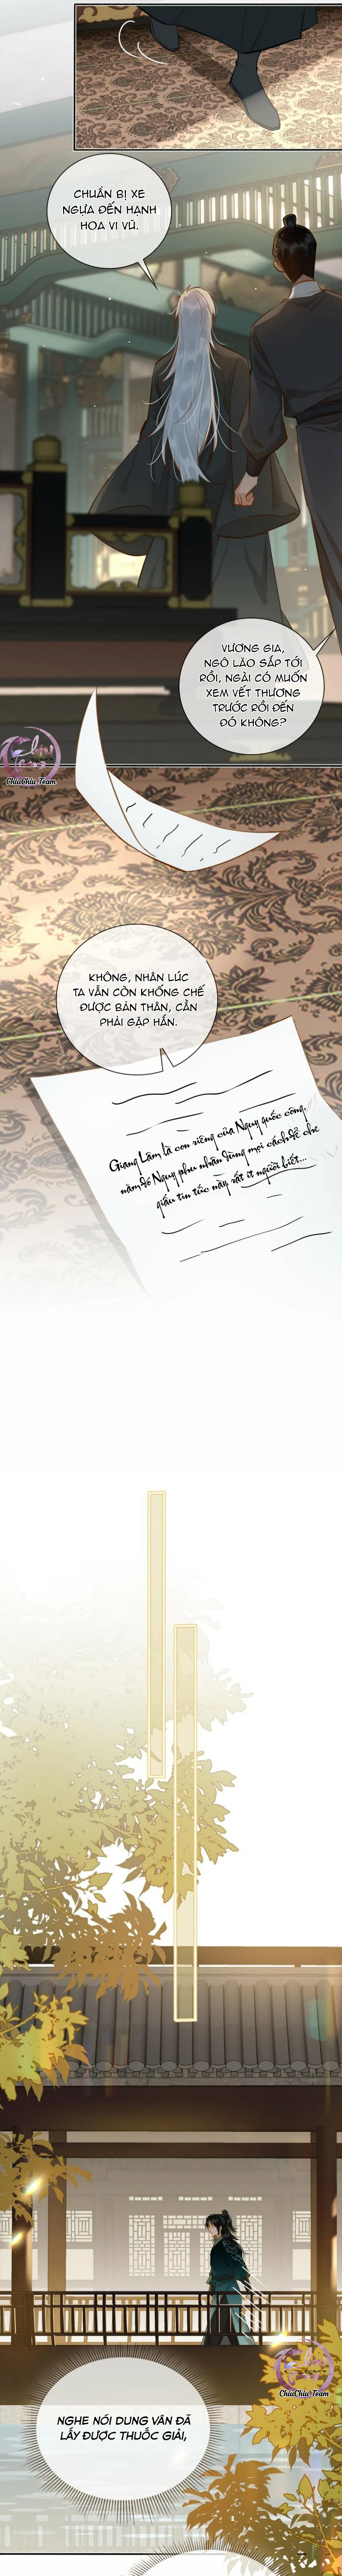 CHUẨN BỊ XE
NGỰA ĐẾN HẠNH
HOA VI VŨ.
VƯƠNG GIA,
NGÔ LÃO SẮP TỚI
RỒI, NGÀI CÓ MUỐN
XEM VẾT THƯƠNG
TRƯỚC RỒI ĐẾN
ĐÓ KHÔNG?
ChiuChiu Team
KHÔNG, NHÂN LÚC
TA VẪN CÒN KHỐNG CHẾ
ĐƯỢC BẢN THÂN, CẦN
PHẢI GẶP HẮN.
Giang Lâm là con riêng của Ngụy quốc công,
năm đó Ngụy phu nhân dùng mọi cách để che
giấu tin tức này, rất ít người biết...
ChiuChiu Team
NGHE NÓI DUNG VÂN ĐÃ
LẤY ĐƯỢC THUỐC GIẢI,